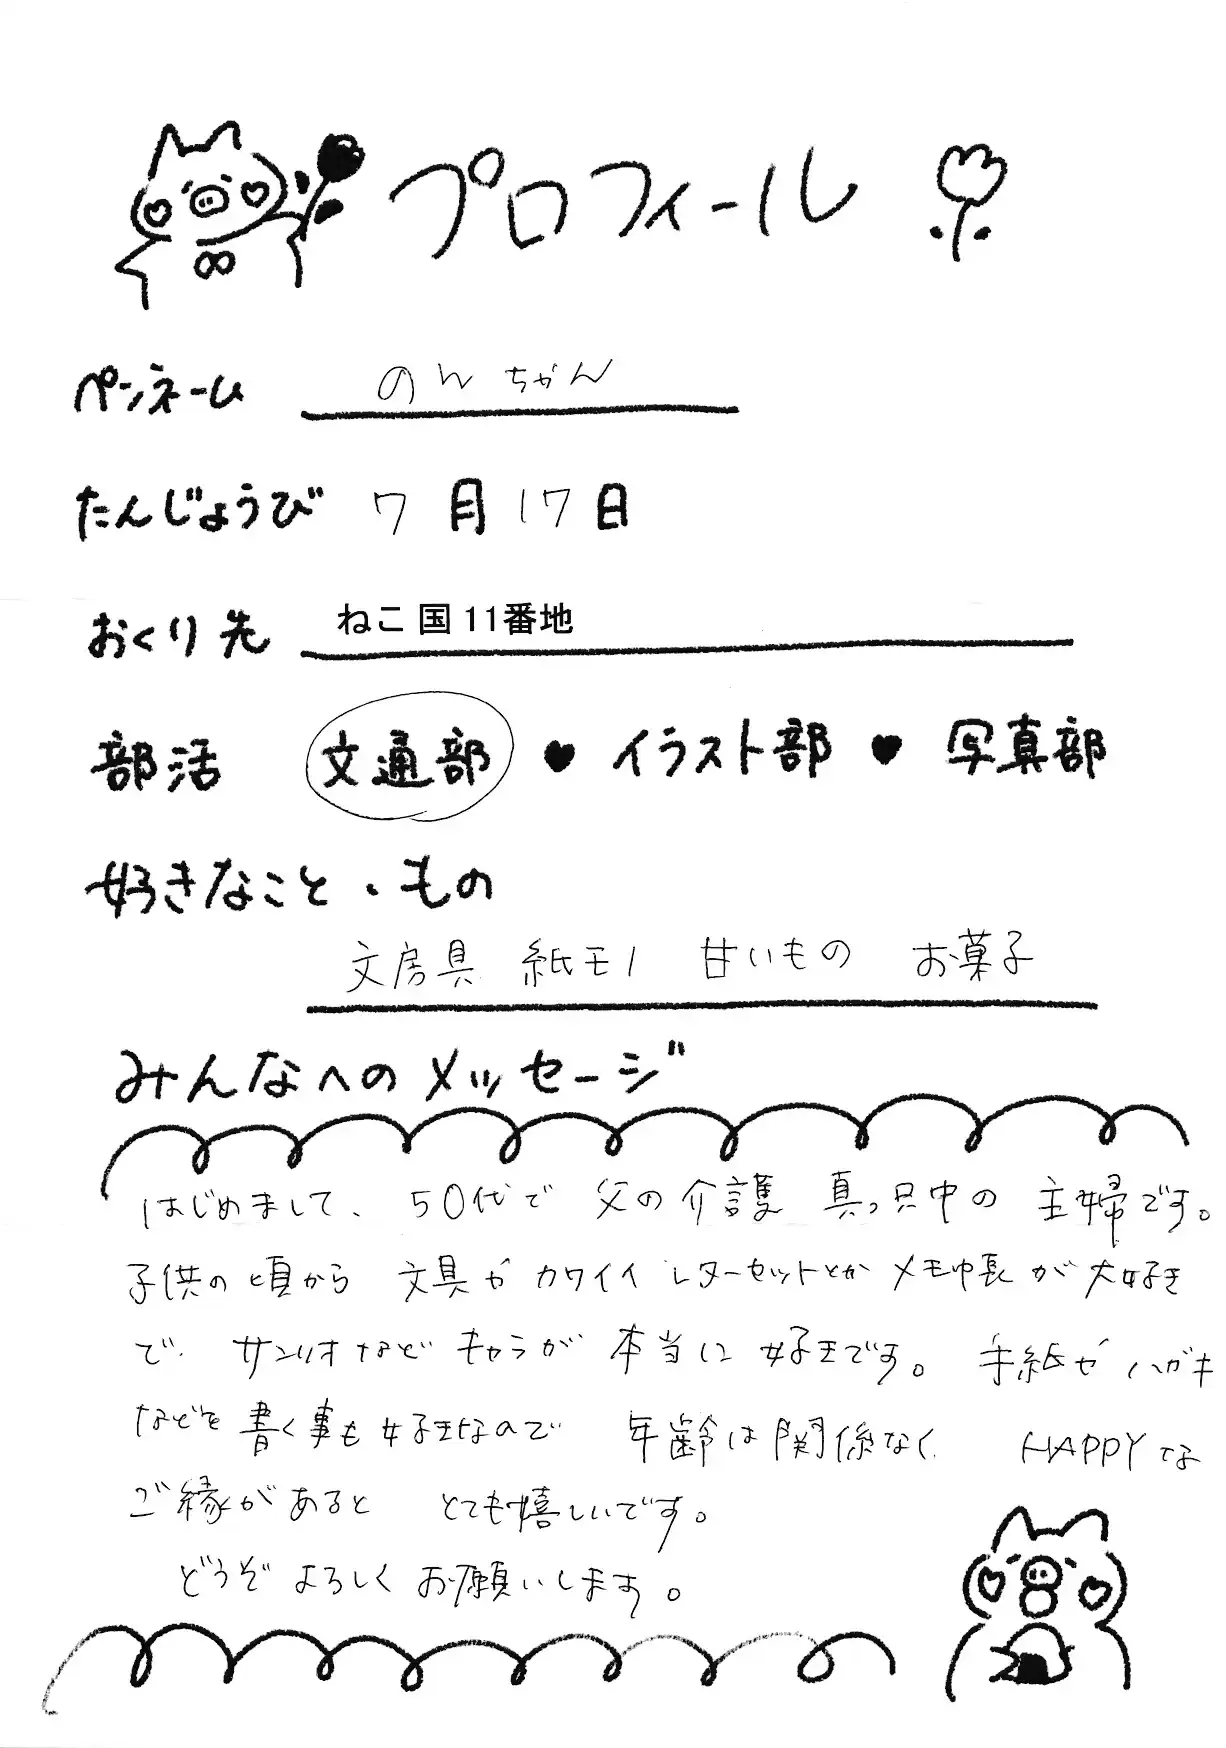 プロフィール
ペンネーム のんちゃん
たんじょうび 7月17日
おくり先 ねこ国11番地
部活 文通部 ♥ イラスト部 ♥ 写真部
好きなこと・もの
文房具 紙モノ 甘いもの お菓子
みんなへのメッセージ
はじめまして、50代で父の介護真っ只中の主婦です。
子供の頃から文具やカワイイレターセットとかメモ帳が大好き
で、サンリオなどキャラが本当に好きです。手紙やハガキ
などを書く事も好きなので年齢は関係なくHAPPYな
ご縁があるととても嬉しいです。
どうぞよろしくお願いします。